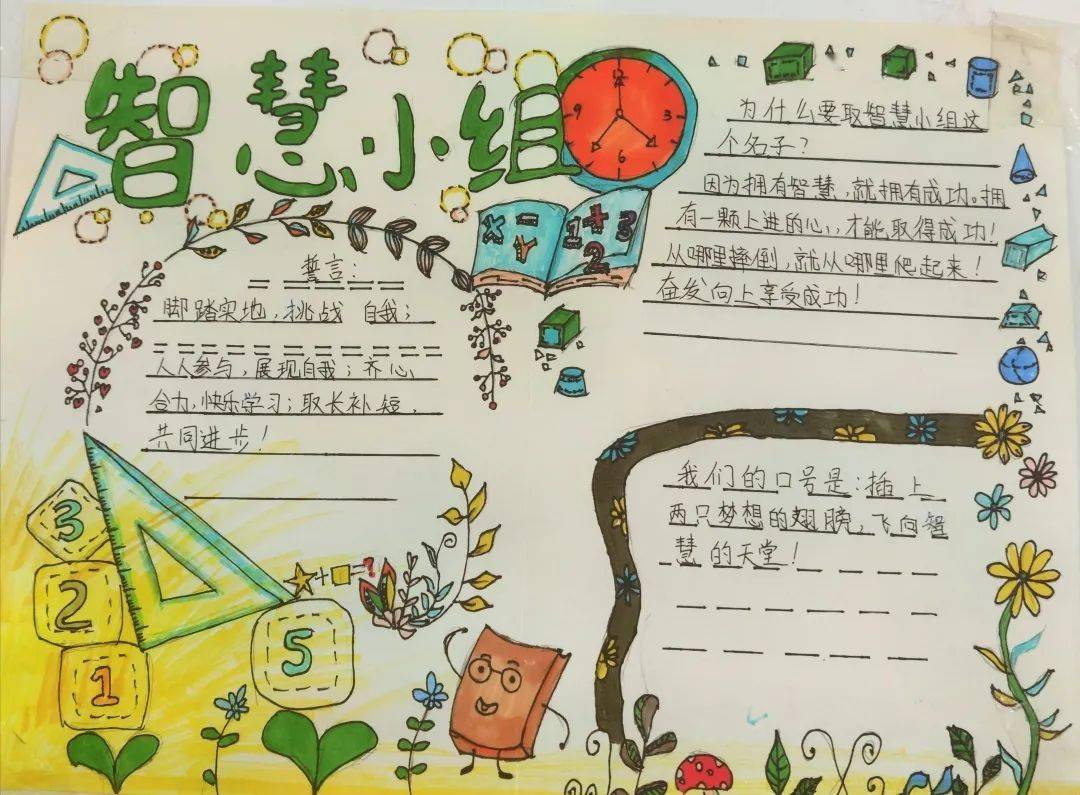 智慧小组
12
3
6
9
× - Y
1 + 3
2
为什么要取智慧小组这
个名子?
因为拥有智慧,就拥有成功。拥
有一颗上进的心,才能取得成功!
从哪里摔倒,就从哪里爬起来!
奋发向上享受成功!
誓言:
脚踏实地,挑战 自我;
人人参与,展现自我;齐心
合力,快乐学习;取长补短,
共同进步!
我们的口号是:插上
两只梦想的翅膀,飞向智
慧的天堂!
3
2
1
5
+ = ?